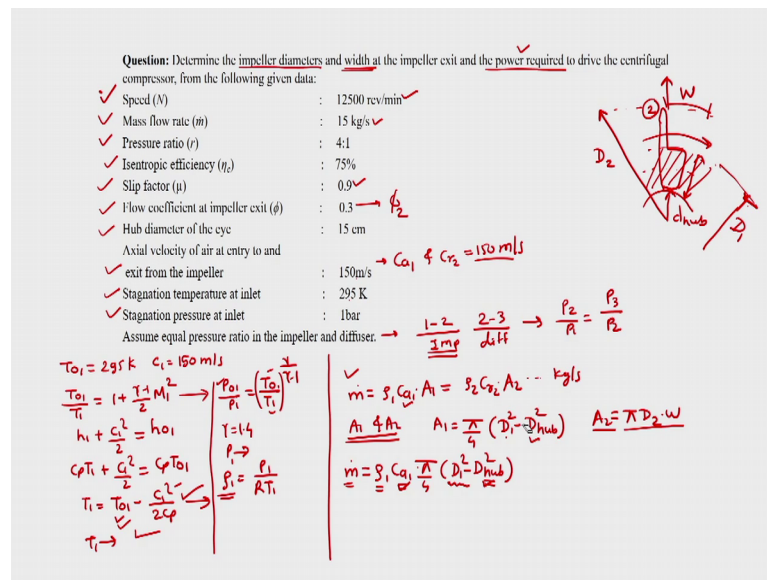 Question: Determine the impeller diameters and width at the impeller exit and the power required to drive the centrifugal
compressor, from the following given data:
Speed (N) : 12500 rev/min
Mass flow rate (ṁ) : 15 kg/s
Pressure ratio (r) : 4:1
Isentropic efficiency (ηc) : 75%
Slip factor (μ) : 0.9
Flow coefficient at impeller exit (ϕ) : 0.3 → ϕ2
Hub diameter of the eye : 15 cm
Axial velocity of air at entry to and
exit from the impeller : 150m/s → Ca1 & Cr2 = 150 m/s
Stagnation temperature at inlet : 295 K
Stagnation pressure at inlet : 1bar
Assume equal pressure ratio in the impeller and diffuser. → 1-2/Imp 2-3/diff → P2/P1 = P3/P2
W
2
D2
dhub
D1
T01 = 295K C1 = 150 m/s
T01/T1 = 1 + γ-1/2 M1^2 → P01/P1 = (T01/T1)^γ/γ-1
h1 + C1^2/2 = h01
CpT1 + C1^2/2 = CpT01
T1 = T01 - C1^2/2Cp
T1 →
γ = 1.4
P1 →
ρ1 = P1/RT1
ṁ = ρ1 Ca1 A1 = ρ2 Cr2 A2 ... kg/s
A1 & A2 A1 = π/4 (D1^2 - Dhub^2) A2 = πD2·W
ṁ = ρ1 Ca1 π/4 (D1^2 - Dhub^2)